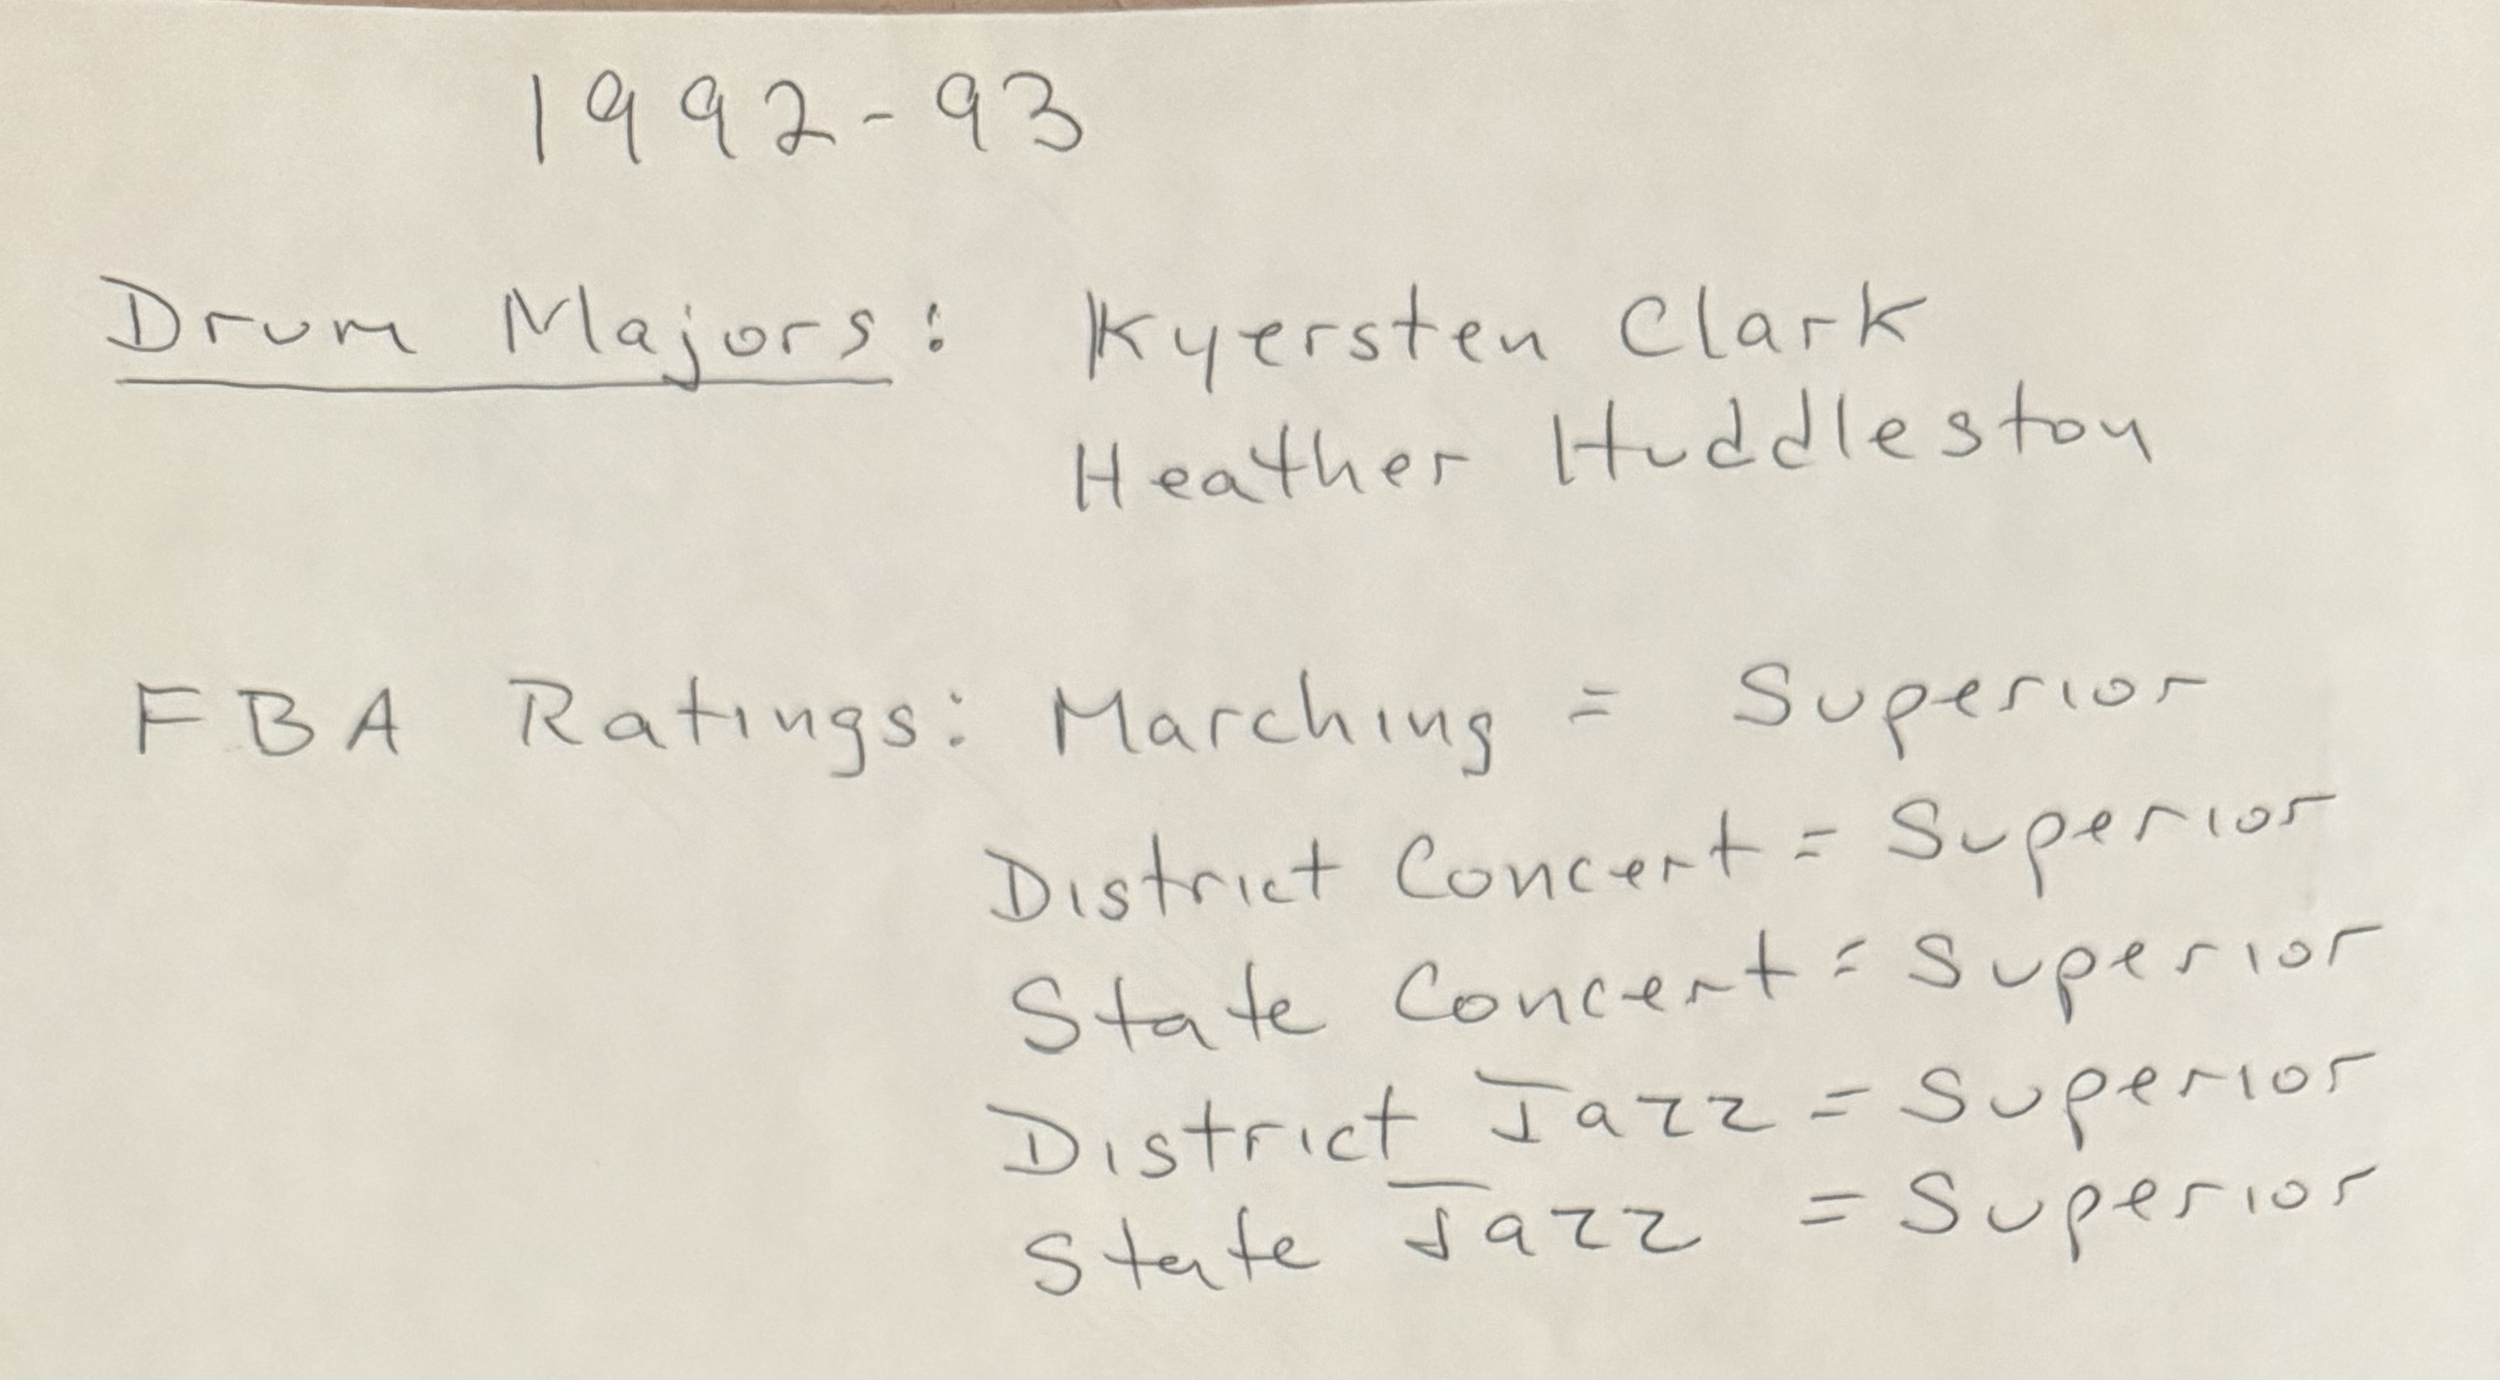 1992-93
Drum Majors: Kyersten Clark
Heather Huddleston
FBA Ratings: Marching = Superior
District Concert = Superior
State Concert = Superior
District Jazz = Superior
State Jazz = Superior